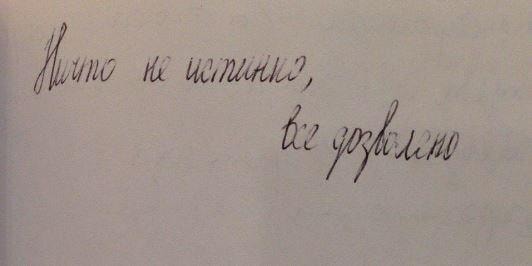 Ничто не истинно,
все дозволено